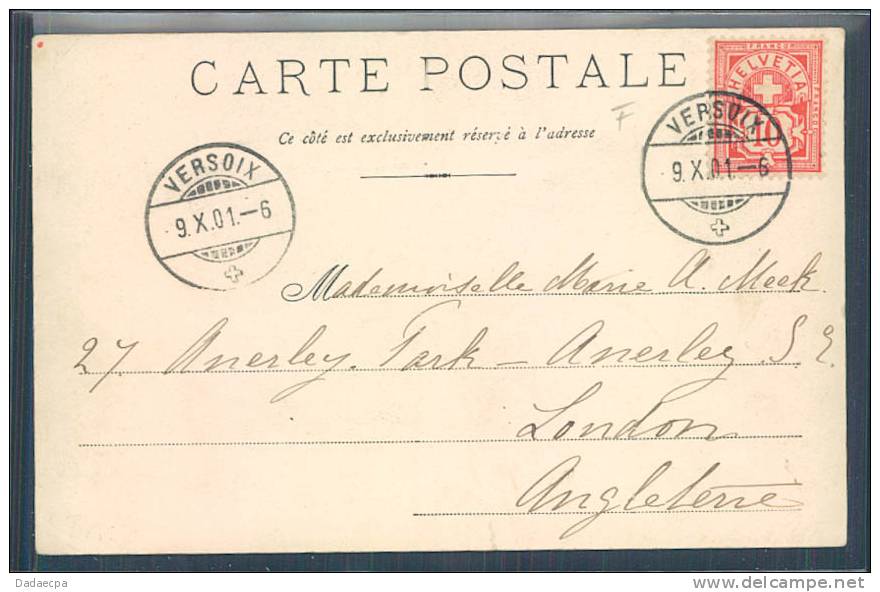 CARTE POSTALE
Ce côté est exclusivement réservé à l'adresse
F
FRANCO
HELVETIA
10
VERSOIX
9.X.01.–6
VERSOIX
9.X.01.–6
Mademoiselle Marie A. Meek.
27 Anerley Park – Anerley S E.
London
Angleterre
Dadaecpa
delcampe.net